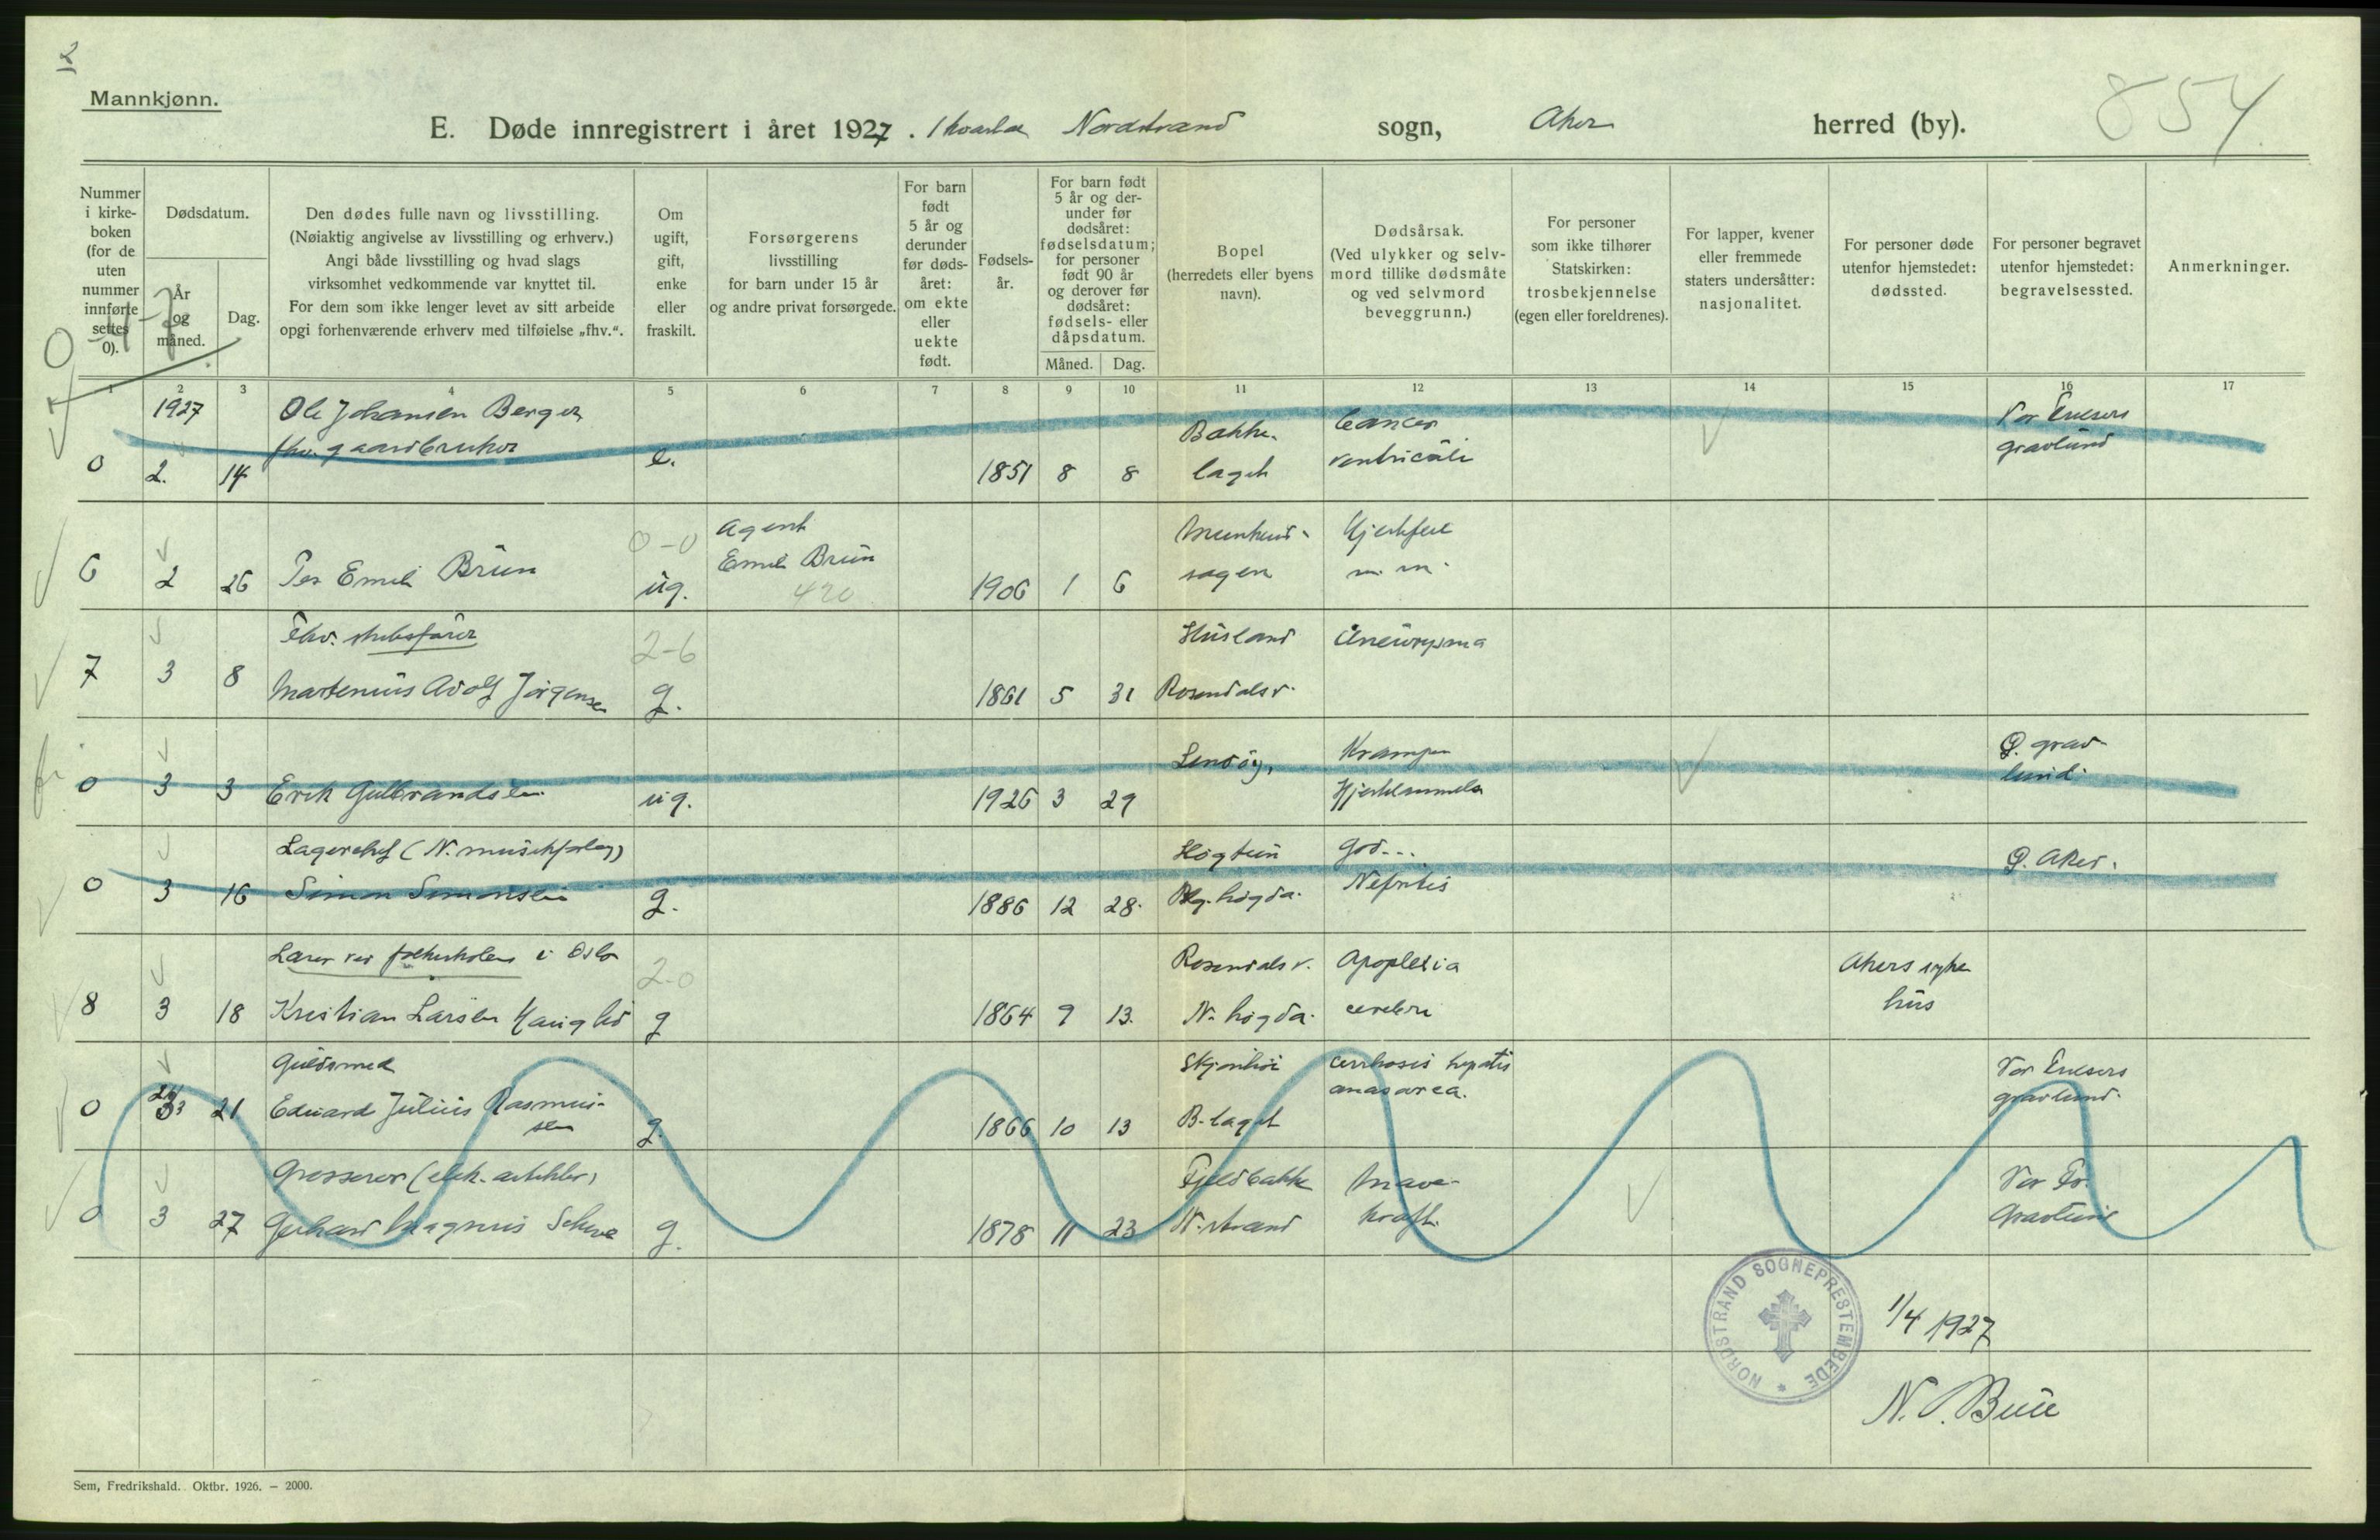 2
Mannkjønn.
E. Døde innregistrert i året 1927. 1 kvartal Nordstrand sogn, Aker herred (by).
854
Nummer i kirke-boken (for de uten nummer innførte settes 0).
Dødsdatum.
År og måned.
Dag.
Den dødes fulle navn og livsstilling.
(Nøiaktig angivelse av livsstilling og erhverv.)
Angi både livsstilling og hvad slags
virksomhet vedkommende var knyttet til.
For dem som ikke lenger levet av sitt arbeide
opgi forhenværende erhverv med tilføielse „fhv.“.
Om ugift, gift, enke eller fraskilt.
Forsørgerens
livsstilling
for barn under 15 år
og andre privat forsørgede.
For barn født 5 år og derunder før døds-året: om ekte eller uekte født.
Fødsels-år.
For barn født 5 år og der-under før dødsåret: fødselsdatum; for personer født 90 år og derover før dødsåret: fødsels- eller dåpsdatum.
Måned.
Dag.
Bopel
(herredets eller byens
navn).
Dødsårsak.
(Ved ulykker og selv-
mord tillike dødsmåte
og ved selvmord
beveggrunn.)
For personer
som ikke tilhører
Statskirken:
trosbekjennelse
(egen eller foreldrenes).
For lapper, kvener
eller fremmede
staters undersåtter:
nasjonalitet.
For personer døde
utenfor hjemstedet:
dødssted.
For personer begravet
utenfor hjemstedet:
begravelsessted.
Anmerkninger.
1 2 3 4 5 6 7 8 9 10 11 12 13 14 15 16 17
1927 Ole Johansen Berger Cancer Vor Frelsers
fhv. gaardbruker Bække- ventriculi gravlund
0 2. 14 e. 1851 8 8 laget
Agent Hjertefeil
Emil Brun m. m.
6 2 26 Per Emil Brun 0-0 ug. 420 1906 1 6
Fhv. skibsfører 2-6 Husland Aneurysma
7 3 8 Martenius Adolf Jørgensen g. 1861 5 31 Rosendalsv.
Krampe Ø. grav-
0 3 3 Erik Gulbrandsen ug. 1926 3 29 Hjertelammelse lund.
Lagerchef (N. musikforlag) Høgtun Ø. Aker.
0 3 16 Simon Simonsen g. 1886 12 28. Nefritis
Lærer ved folkeskolen i Oslo 2-0 Rosendalsv. Apoplexia Akers syke
8 3 18 Kristian Larsen Hauglid g 1864 9 13. N. høgda. cerebri hus
Guldsmed Skjønhøi cirrhosis hepatis Vor Frelsers
anasarca. gravlund.
0 3 21 Edvard Julius Rasmus-
sen g. 1866 10 13 B-laget
Grosserer (elek. artikler) Fjeldbakke Mave- Vor Fr.
0 3 27 Gerhard Magnus g. 1878 11 23 N. strand kræft. Gravlund
NORDSTRAND SOGNEPRESTEMBEDE
1/4 1927
Sem, Fredrikshald. Oktbr. 1926. – 2000.